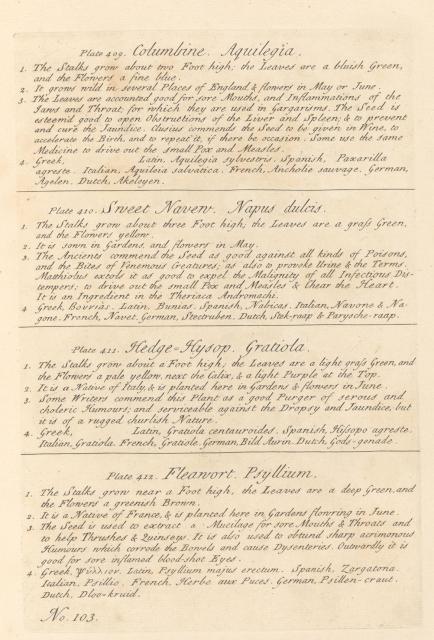 Plate 409. Columbine. Aquilegia.
1. The Stalks grow about two Foot high; the Leaves are a bluish Green,
and the Flowers a fine blue.
2. It grows wild in several Places of England & flowers in May or June.
3. The Leaves are accounted good for sore Mouths, and Inflammations of the
Jaws and Throat; for which they are used in Gargarisms. The Seed is
esteemid good to open Obstructions of the Liver and Spleen; & to prevent
and cure the Jaundice. Clusius commends the Seed to be given in Wine, to
accelerate the Birth, and to repeat it, if there be occasion. Some use the same
Medicine to drive out the small Pox and Measles.
4. Greek, Latin, Aquilegia sylvestris. Spanish, Paxarilla
agreste. Italian, Aquiloia salvatica. French, Ancholie sauvage. German,
Agelen. Dutch, Akeloyen.
Plate 410. Sweet Navew. Napus dulcis.
1. The Stalks grow about three Foot high; the Leaves are a graſs Green,
and the Flowers yellow.
2. It is sown in Gardens, and flowers in May.
3. The Ancients commend the Seed as good against all kinds of Poisons,
and the Bites of Venemous Creatures; as also to provoke Urine & the Terms.
Matthiolus extols it as good to expel the Malignity of all Infectious Dis-
tempers; to drive out the small Pox and Measles & Chear the Heart.
It is an Ingredient in the Theriaca Andromachi.
4. Greek, Βουνιὰς. Latin, Bunias. Spanish, Nabicas. Italian, Navone & Na-
gone. French, Navet. German, Stectruben. Dutch, Stek-raap & Parysche-raap.
Plate 411. Hedge-Hysop. Gratiola.
1. The Stalks grow about a Foot high; the Leaves are a light graſs Green, and
the Flowers a pale yellow, next the Calix, & a light Purple at the Top.
2. It is a Native of Italy, & is planted here in Gardens & flowers in June.
3. Some Writers commend this Plant as a good Purger of serous and
choleric Humours; and serviceable against the Dropsy and Jaundice, but
it is of a rugged churlish Nature.
4. Greek, Latin, Gratia centauroides. Spanish, Hiſsopo agreste.
Italian, Gratiola. French, Gratiole. German, Bild Aurin. Dutch, Gods-genade.
Plate 412. Fleawort. Psyllium.
1. The Stalks grow near a Foot high, the Leaves are a deep Green, and
the Flowers a greenish Brown.
2. It is a Native of France, & is planted here in Gardens flowring in June.
3. The Seed is used to extract a Mucilage for sore Mouths & Throats and
to help Thrushes & Quinseys. It is also used to obtund sharp acrimonous
Humours which corrode the Bowels and cause Dysenteries. Outwardly it is
good for sore inflamed bloodshot Eyes.
4. Greek, Ψύλλιον. Latin, Psyllium majus erectum. Spanish, Zargatona.
Italian, Psillio. French, Herbe aux Puces. German, Psillen-craut.
Dutch, Vloo-kruid.
No. 103.